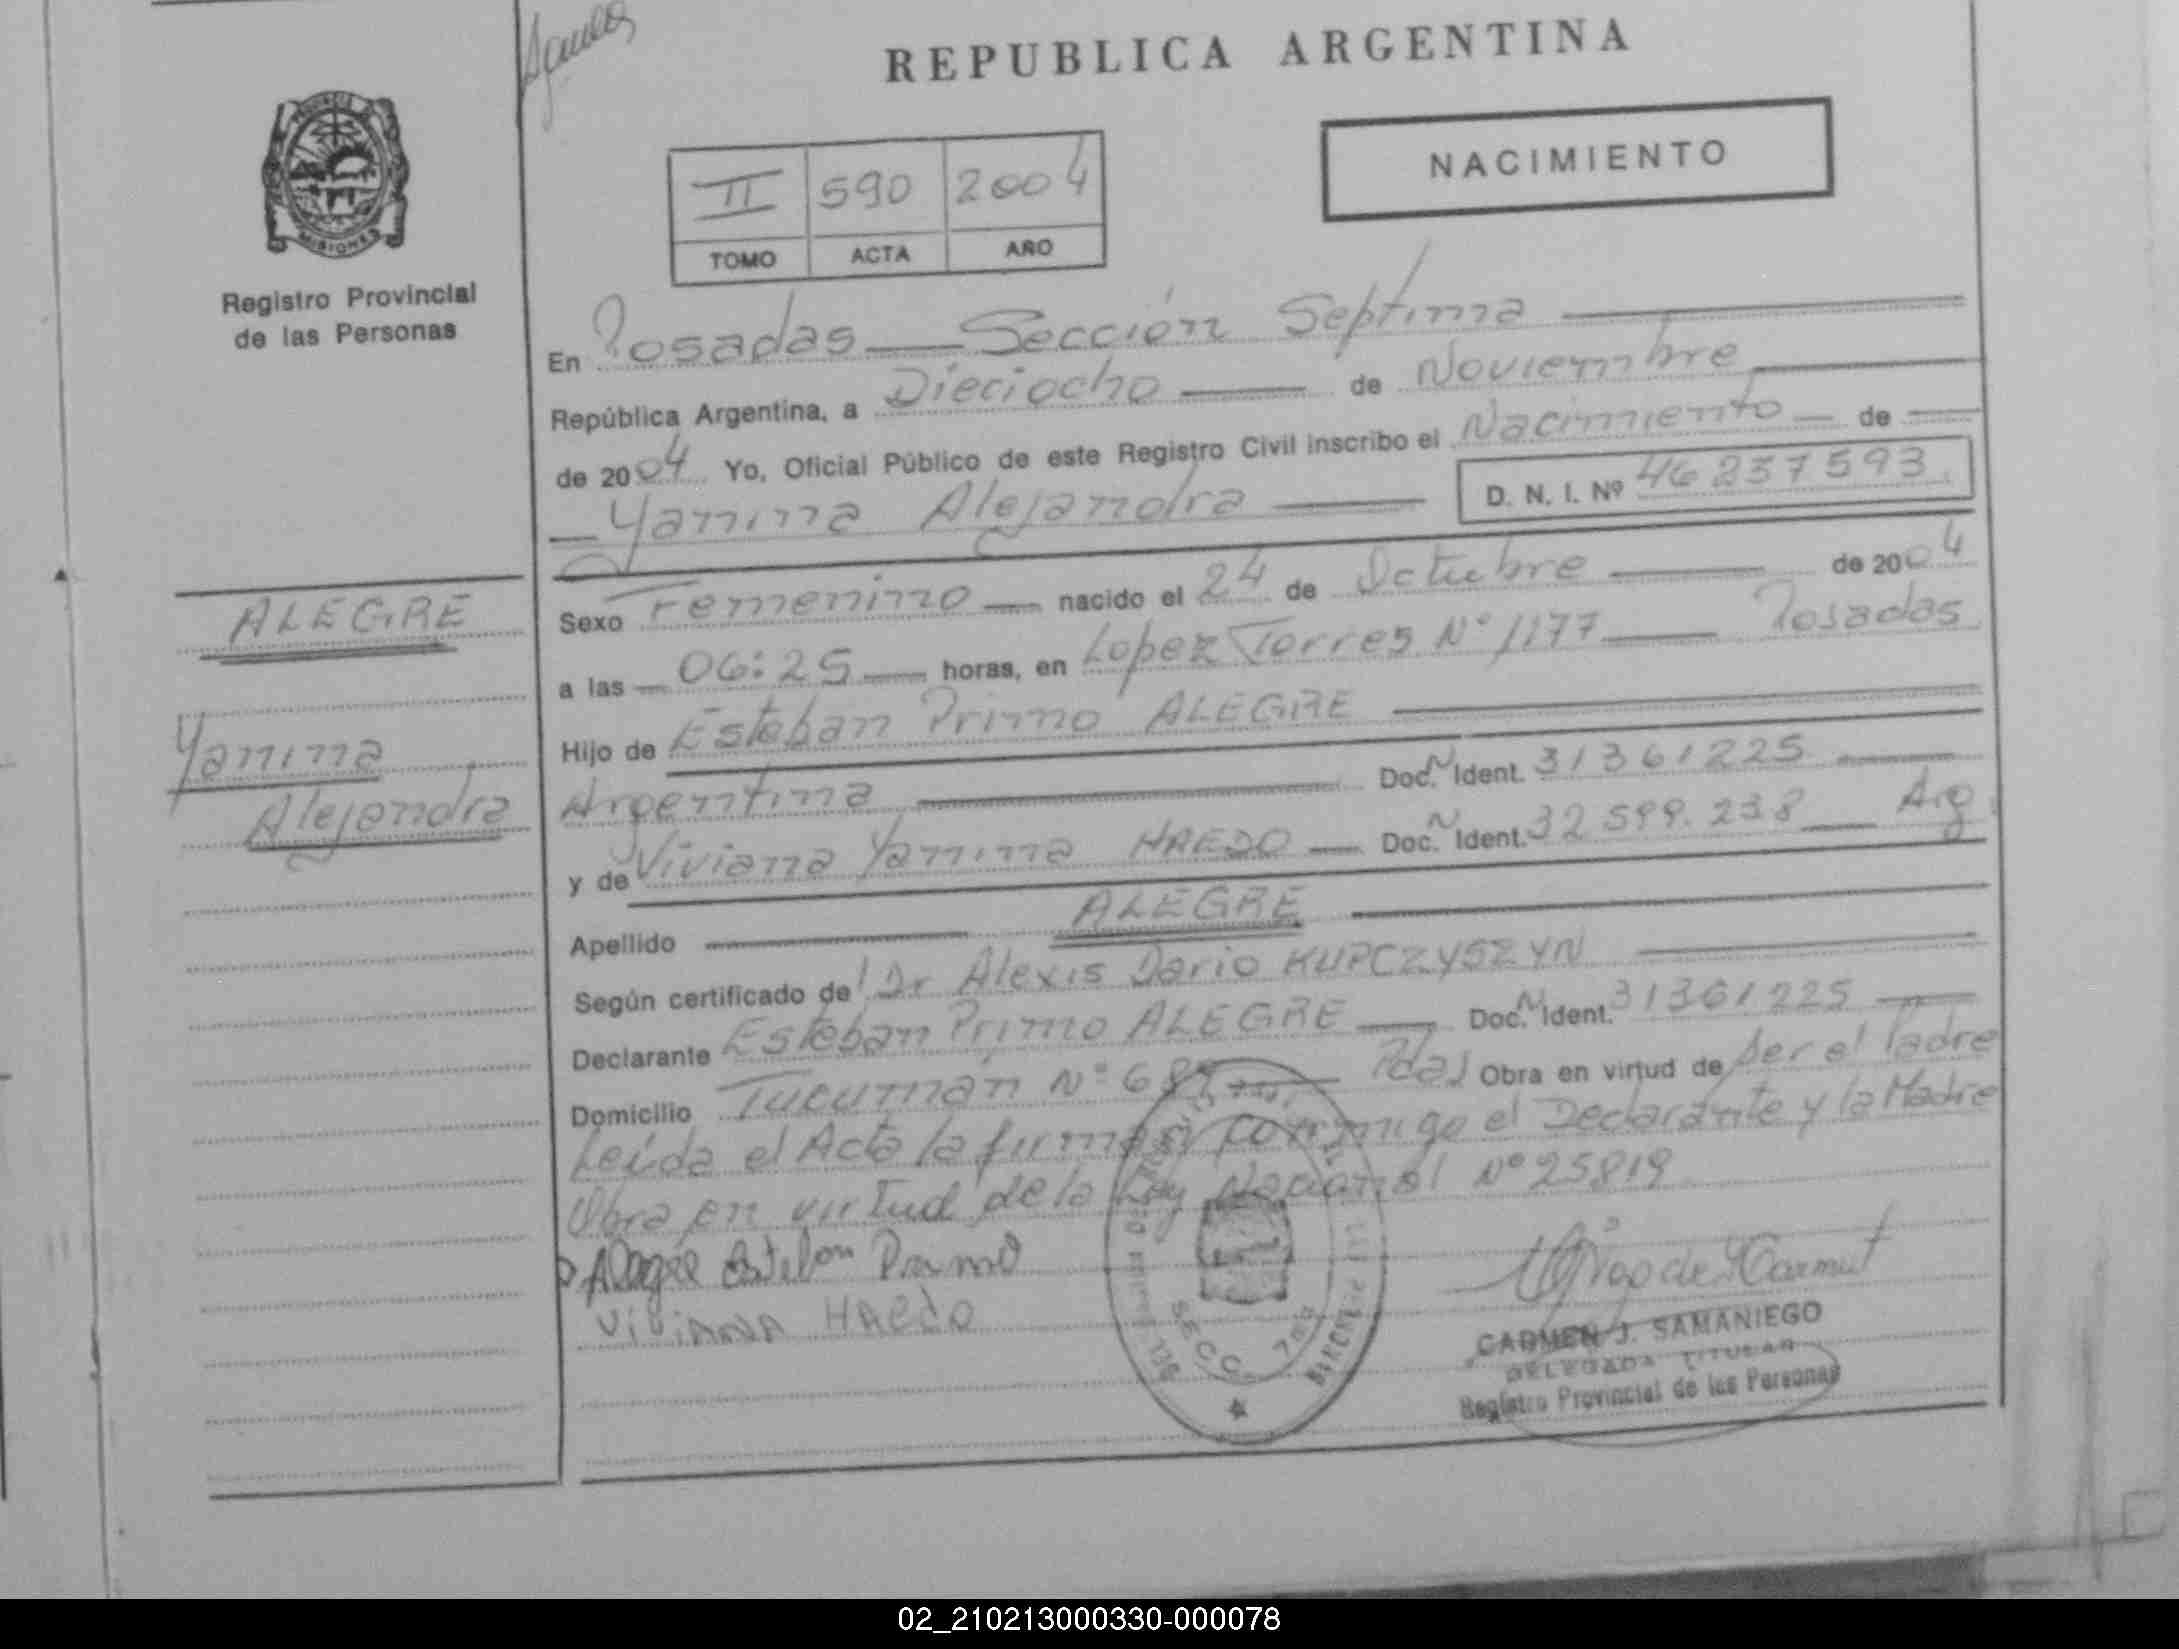 REPUBLICA ARGENTINA
NACIMIENTO
II 590 2004
TOMO ACTA AÑO
PROVINCIA DE
MISIONES
Registro Provincial
de las Personas
En Posadas — Sección Septima
República Argentina, a Dieciocho — de Noviembre
de 2004 Yo, Oficial Público de este Registro Civil inscribo el Nacimiento — de
Yanina Alejandra — D. N. I. Nº 46237593
Sexo Femenino — nacido el 24 de Octubre — de 2004
a las — 06:25 — horas, en Lopez Torres Nº 1177 — Posadas
Hijo de Esteban Primo ALEGRE
Argentina — Doc. N Ident. 31361225
y de Viviana Yanina HAEDO — Doc. N Ident. 32.599.238 — Arg.
Apellido — ALEGRE
Según certificado de Dr Alexis Dario KUPCZYSZYN
Declarante Esteban Primo ALEGRE — Doc. N Ident. 31361225
Domicilio Tucumán Nº — Pdas Obra en virtud de ser el Padre
Leida el Acta la firman conmigo el Declarante y la Madre
Obra en virtud de la Ley Nacional Nº 25819
Alegre Esteban Primo
ViViANA HAEDO
SECC. 7ma
CARMEN J. SAMANIEGO
DELEGADA TITULAR
Registro Provincial de las Personas
ALEGRE
Yanina
Alejandra
02_210213000330-000078